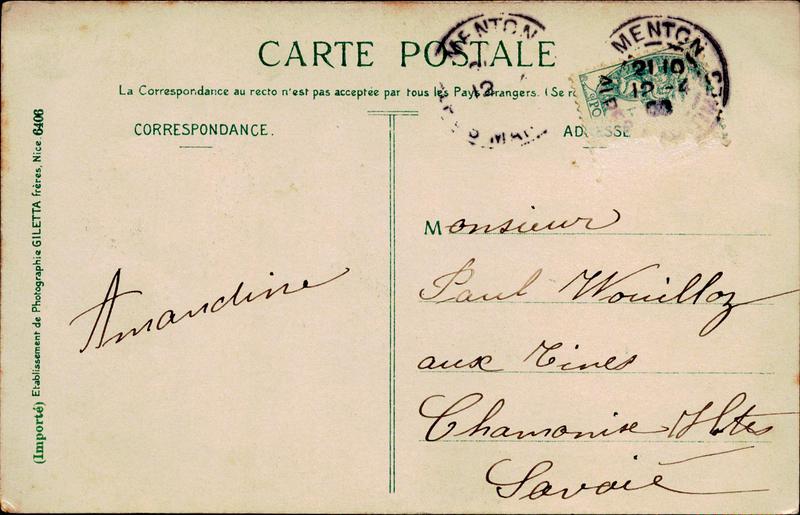 CARTE POSTALE
La Correspondance au recto n'est pas acceptée par tous les Pays étrangers. (Se
CORRESPONDANCE.
ADRESSE
MENTON
12
MENTON
21 10
12 -4
Monsieur
Paul Wouilloz
aux Tines
Chamonix Htes
Savoie
Amandine
(Importé) Etablissement de Photographie GILETTA frères, Nice 6406